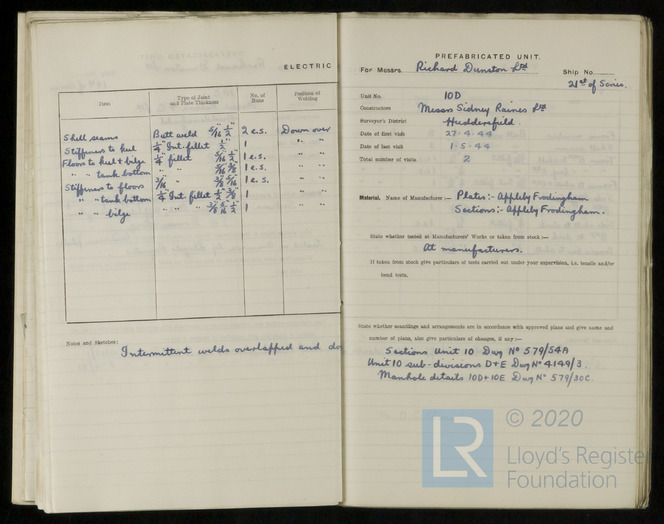 ELECTRIC
Item Type of Joint and Plate Thickness No. of Runs Position of Welding
Shell seams Butt weld 5/16" 1/2" 2 e.s. Down over
Stiffeners to keel 1/4" Int. fillet 1/2" 1 " "
Floors to keel & bilge 1/4" fillet 5/16 1/2 1 e.s. " "
" " tank bottom " 5/16 3/8 1 e.s. " "
Stiffeners to floors 3/16 " 3/8 5/16 1 e.s. " "
" " tank bottom 1/4" Int. fillet 1/2" 3/8" 1 " "
" " bilge " " " 3/8 5/16 1/2 1 " "
Notes and Sketches:
Intermittent welds overlapped and
PREFABRICATED UNIT.
For Messrs. Richard Dunston Ltd Ship No.
21st of Series.
Unit No. 10D
Constructors Messrs Sidney Raines Ltd
Surveyor's District Huddersfield.
Date of first visit 27-4-44
Date of last visit 1-5-44
Total number of visits 2
Material. Name of Manufacturer:— Plates:- Appleby Frodingham
Sections:- Appleby Frodingham.
State whether tested at Manufacturers' Works or taken from stock:—
At manufacturers.
If taken from stock give particulars of tests carried out under your supervision, i.e. tensile and/or
bend tests.
State whether scantlings and arrangements are in accordance with approved plans and give name and
number of plans, also give particulars of changes, if any:—
Sections Unit 10 Dwg No 579/54A
Unit 10 sub-divisions D+E Dwg No 4149/3.
Manhole details 10D+10E Dwg No 579/30C.
LR
© 2020
Lloyd's Register
Foundation